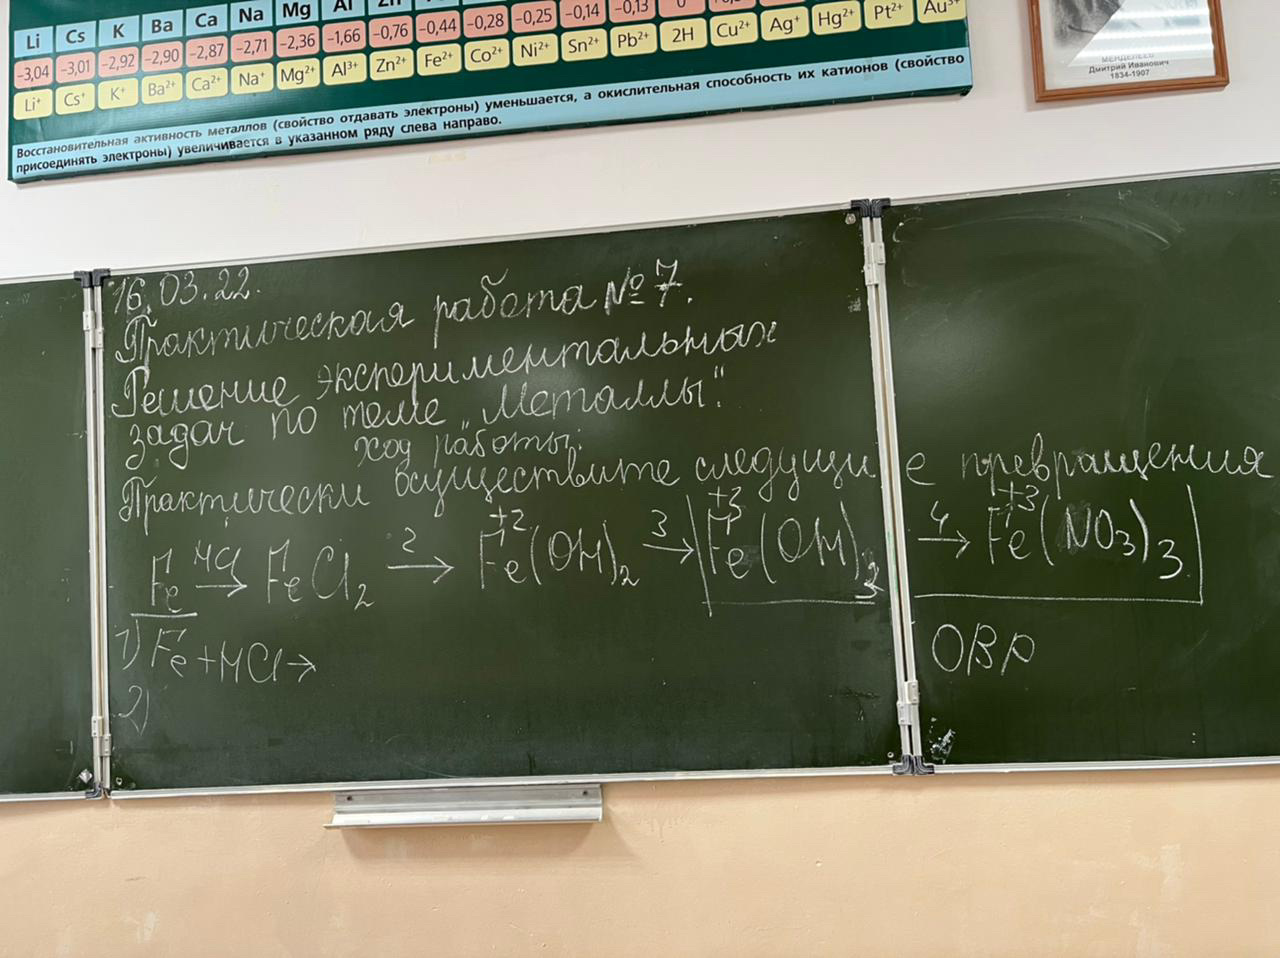 Li Cs K Ba Ca Na Mg Al Zn
-3,04 -3,01 -2,92 -2,90 -2,87 -2,71 -2,36 -1,66 -0,76 -0,44 -0,28 -0,25 -0,14 -0,13 0
Li⁺ Cs⁺ K⁺ Ba²⁺ Ca²⁺ Na⁺ Mg²⁺ Al³⁺ Zn²⁺ Fe²⁺ Co²⁺ Ni²⁺ Sn²⁺ Pb²⁺ 2H Cu²⁺ Ag⁺ Hg²⁺ Pt²⁺ Au³⁺
Восстановительная активность металлов (свойство отдавать электроны) уменьшается, а окислительная способность их катионов (свойство
присоединять электроны) увеличивается в указанном ряду слева направо.
МЕНДЕЛЕЕВ
Дмитрий Иванович
1834-1907
16.03.22.
Практическая работа № 7.
Решение экспериментальных
задач по теме „Металлы".
Ход работы:
Практически осуществите следущие превращения
+2 +3 +3
Fe HCl→ FeCl₂ 2→ Fe(OH)₂ 3→ Fe(OH)₃ 4→ Fe(NO₃)₃
1) Fe+HCl→
ОВР
2)